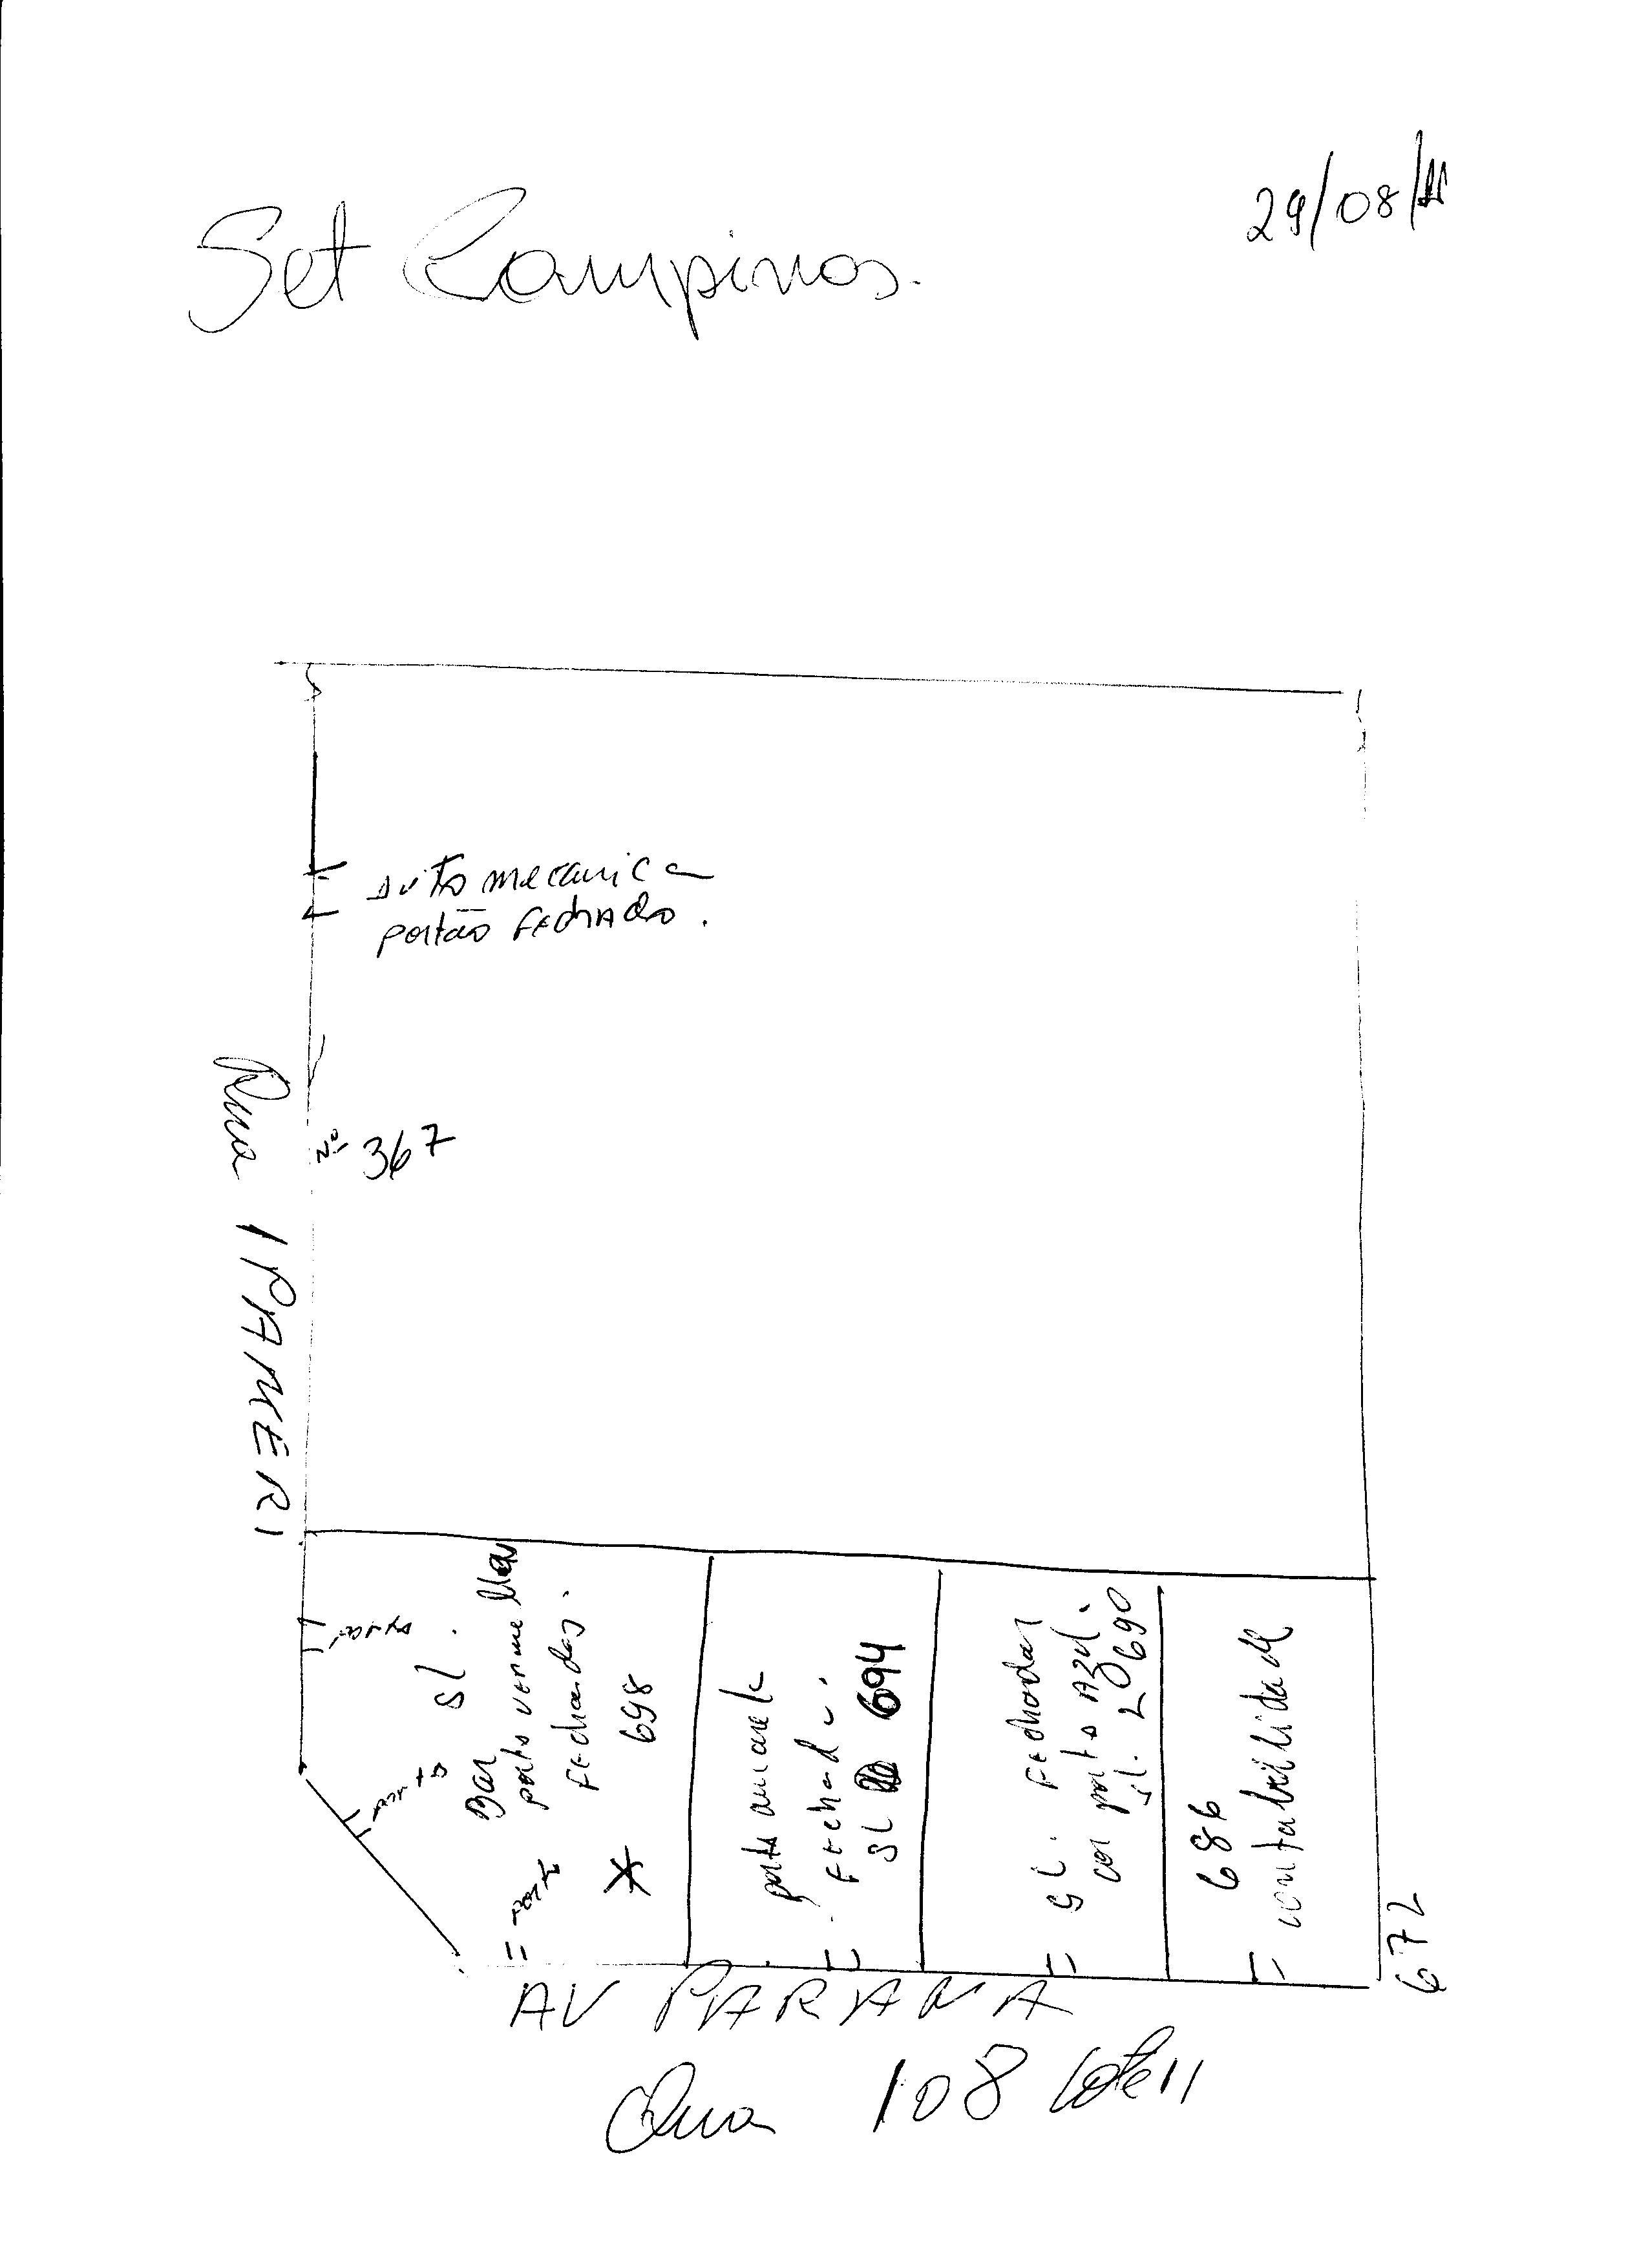 29/08/11
Set Campinas.
auto mecanica
portão fechado.
Nº 367
Rua IPAMERI
porta
sl.
porta
Bar
porta vermelha
fechadas.
698
porta
porta amarela
fechada.
SL 694
SL. fechada
cor porta Azul.
sl. 690
686
contabilidade
672
AV PARANA
Qua 108 lote 11